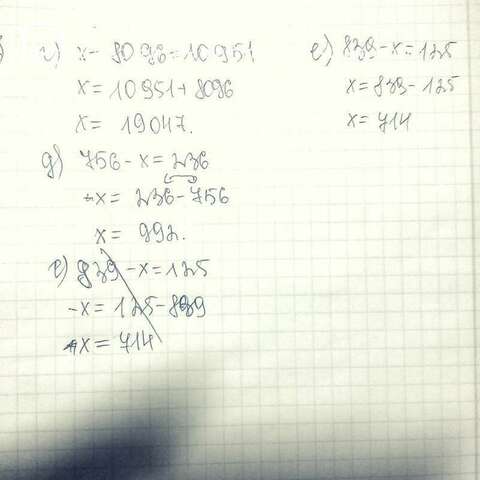 г) x - 8096 = 10951
x = 10951 + 8096
x = 19047.
д) 756 - x = 236
-x = 236 - 756
x = 992.
е) 839 - x = 125
-x = 125 - 839
x = 714
е) 839 - x = 125
x = 839 - 125
x = 714